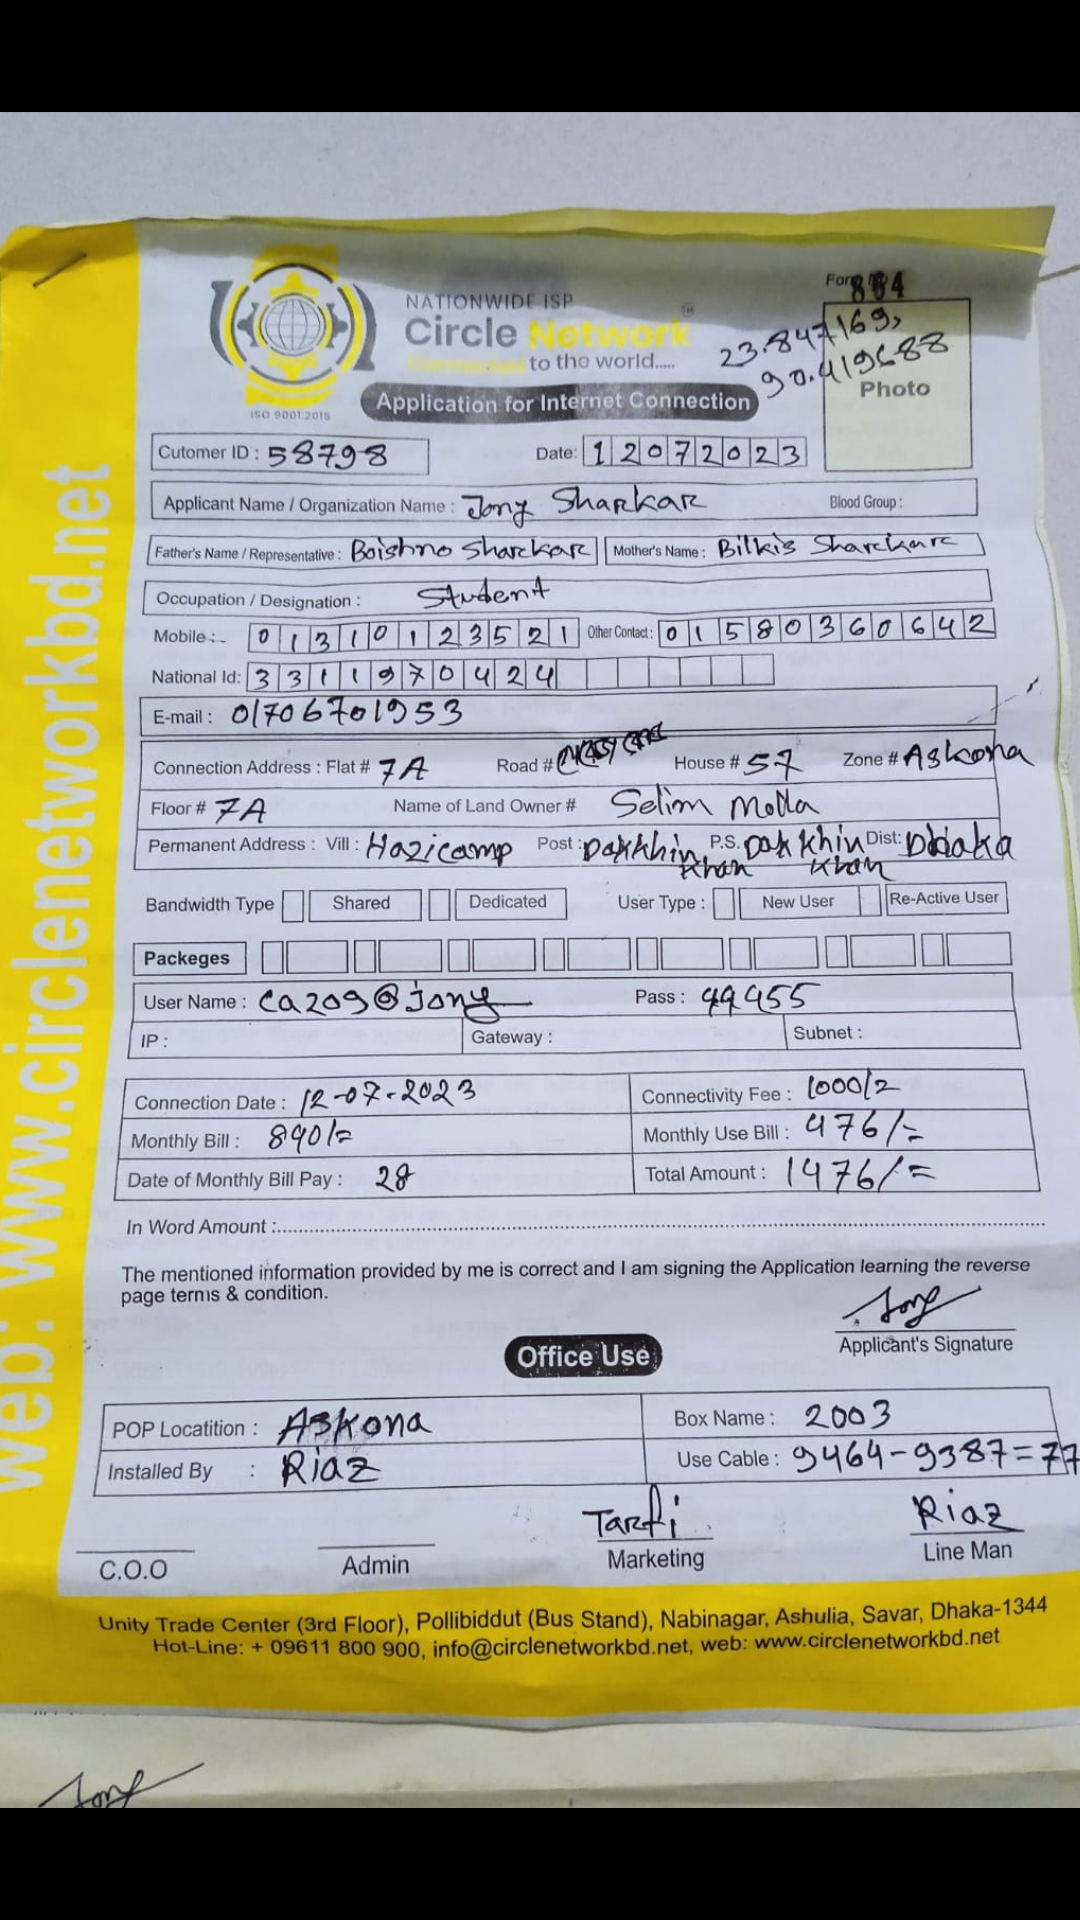 web: www.circlenetworkbd.net
NATIONWIDE ISP
Circle Network
Connected to the world.....
ISO 9001:2015
Form
864
23.847169,
90.419688
Photo
Application for Internet Connection
Cutomer ID : 58798 Date: 12072023
Applicant Name / Organization Name : Jony Sharkar Blood Group :
Father's Name / Representative : Boishno Sharkar Mother's Name : Bilkis Sharkar
Occupation / Designation : Student
Mobile :- 01310123521 Other Contact : 01580360642
National Id: 3311970424
E-mail : 01706701953
Connection Address : Flat # 7A Road # House # 57 Zone # Askona
Floor # 7A Name of Land Owner # Selim Molla
Permanent Address : Vill : Hazicamp Post : Dakkhin Khan P.S. Dakkhin Khan Dist: Dhaka
Bandwidth Type Shared Dedicated User Type : New User Re-Active User
Packeges
User Name : ca209@jony Pass : 99955
IP : Gateway : Subnet :
Connection Date : 12-07-2023 Connectivity Fee : 1000/=
Monthly Bill : 890/= Monthly Use Bill : 476/=
Date of Monthly Bill Pay : 28 Total Amount : 1476/=
In Word Amount :
The mentioned information provided by me is correct and I am signing the Application learning the reverse
page terms & condition.
Jony
Applicant's Signature
Office Use
POP Locatition : Askona Box Name : 2003
Installed By : Riaz Use Cable : 9464-9387=77
Tarfi Riaz
C.O.O Admin Marketing Line Man
Unity Trade Center (3rd Floor), Pollibiddut (Bus Stand), Nabinagar, Ashulia, Savar, Dhaka-1344
Hot-Line: + 09611 800 900, info@circlenetworkbd.net, web: www.circlenetworkbd.net
Jony